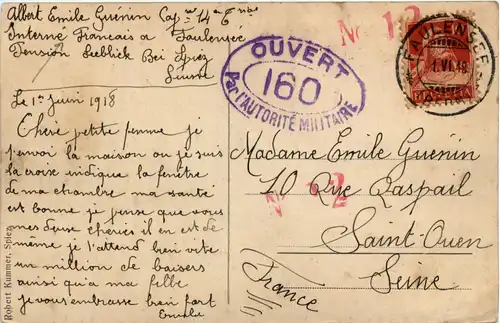 Albert Emile Guénin Cap al 14e 6
Interné Francais a Faulensee
Pension Seeblick Bei Spiez
Suisse
Le 1er Juin 1918
Chère petite femme je
t'envoi la maison ou je suis
la croix indique la fenêtre
de ma chambre ma santé
est bonne je pense que vous
mes deux chéries il en est de
même je t'attend bien vite
un million de baisers
ainsi qu'a ma fille
je vous embrasse bien fort
Emile
No 12
OUVERT
160
Par l'AUTORITÉ MILITAIRE
FAULENSEE
1.VI.18
Madame Emile Guénin
10 Rue Raspail
No 2
Saint-Ouen
Seine
France
Robert Kummer, Spiez